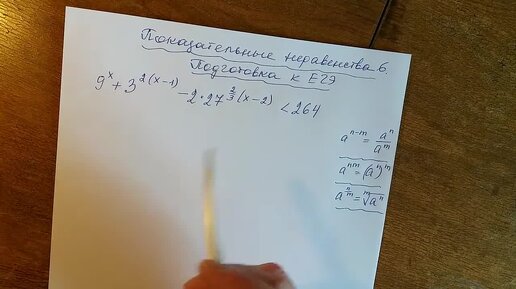 Показательные неравенства 6.
Подготовка к ЕГЭ
9^x + 3^{2(x-1)} - 2·27^{\frac{2}{3}(x-2)} < 264
a^{n-m} = \frac{a^n}{a^m}
a^{nm} = (a^n)^m
a^{\frac{n}{m}} = \sqrt[m]{a^n}